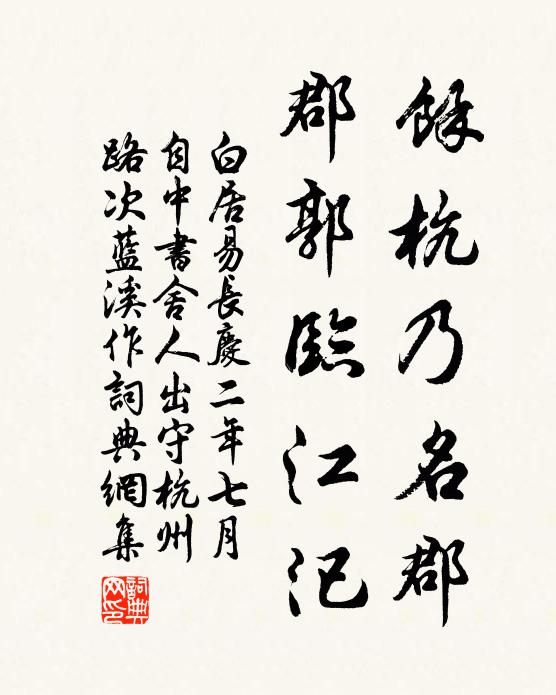 餘杭乃名郡
郡郭臨江汜
白居易長慶二年七月
自中書舍人出守杭州
路次藍溪作詞典網集
詞典
网印